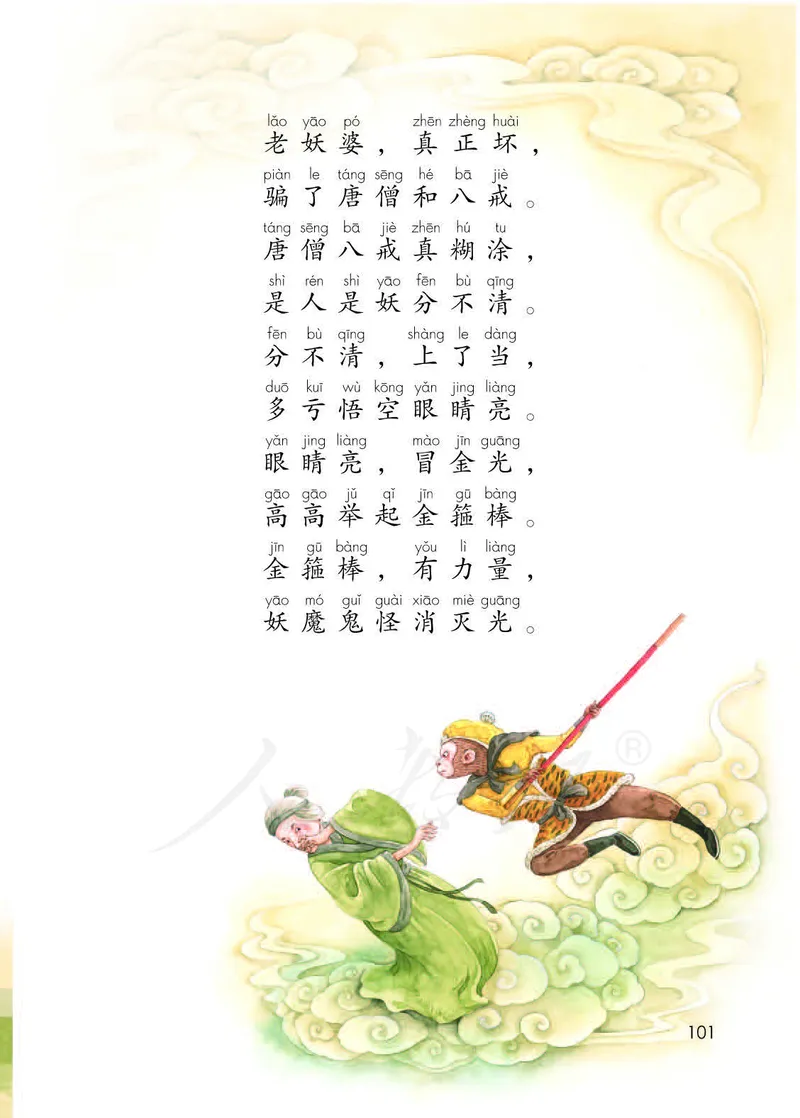 lǎo yāo pó zhēn zhèng huài
老妖婆，真正坏，
piàn le táng sēng hé bā jiè
骗了唐僧和八戒。
táng sēng bā jiè zhēn hú tu
唐僧八戒真糊涂，
shì rén shì yāo fēn bù qīng
是人是妖分不清。
fēn bù qīng shàng le dàng
分不清，上了当，
duō kuī wù kōng yǎn jing liàng
多亏悟空眼睛亮。
yǎn jing liàng mào jīn guāng
眼睛亮，冒金光，
gāo gāo jǔ qǐ jīn gū bàng
高高举起金箍棒。
jīn gū bàng yǒu lì liàng
金箍棒，有力量，
yāo mó guǐ guài xiāo miè guāng
妖魔鬼怪消灭光。
人教®
101